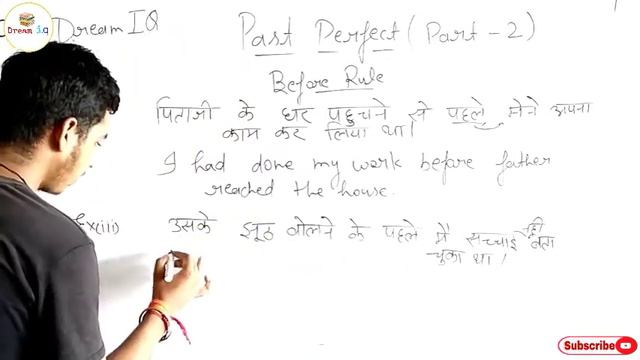 Dream I.Q
Dream IQ
Past Perfect (Part-2)
Before Rule
पिताजी के घर पहुचने से पहले मैंने अपना
काम कर लिया था।
I had done my work before father
reached the house.
Ex(iii) उसके झूठ बोलने के पहले मैं सच्चाई बता
चुका था।
SUBSCRIBE